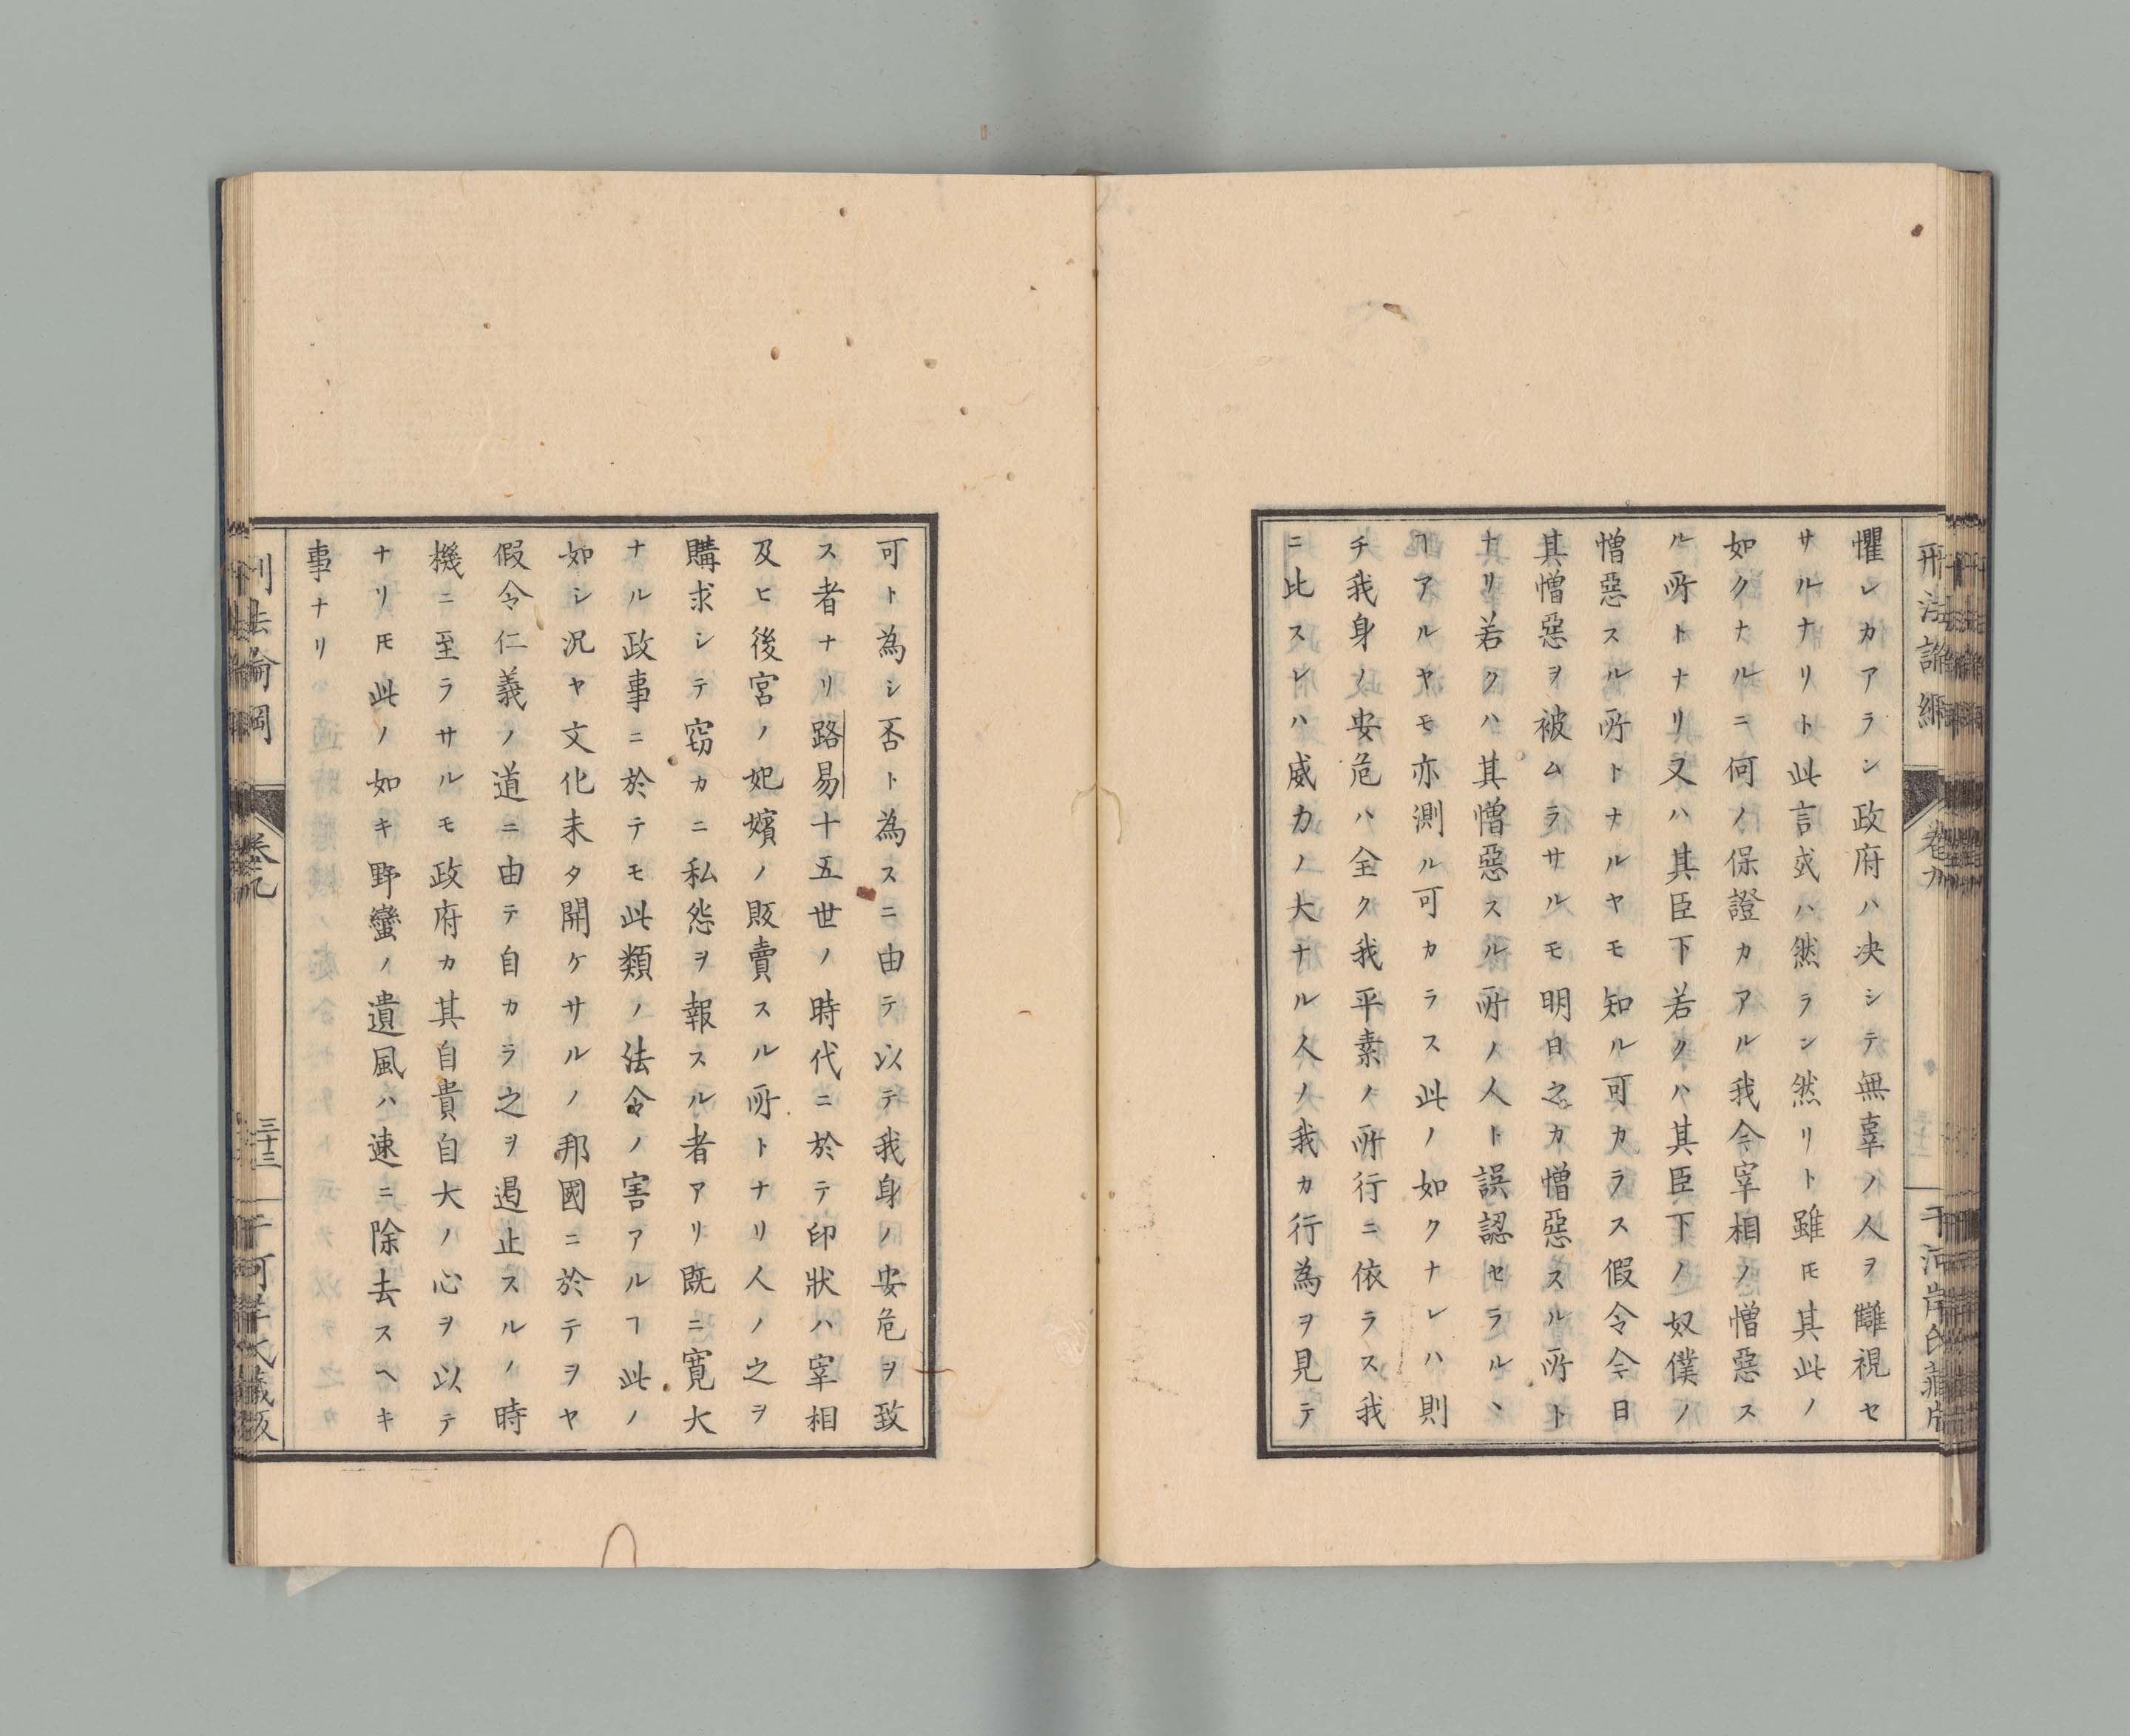 刑法論綱
卷九
千河岸氏藏版
懼レカアラン政府ハ决シテ無辜ノ人ヲ讎視セ
サルナリト此言或ハ然ラン然リト雖𪜈其此ノ
如クナルニ何ノ保證カアル我今宰相ノ憎惡ス
ル所トナリ又ハ其臣下若クハ其臣下ノ奴僕ノ
憎惡スル所トナルヤモ知ル可カラス假令今日
其憎惡ヲ被ムラサルモ明日之カ憎惡スル所ト
ナリ若クハ其憎惡スル所ノ人ト誤認セラルヽ
ヿアルヤモ亦測ル可カラス此ノ如クナレハ則
チ我身ノ安危ハ全ク我平素ノ所行ニ依ラス我
ニ比スレハ威力ノ大ナル人ノ我カ行為ヲ見テ
可ト為シ否ト為スニ由テ以テ我身ノ安危ヲ致
ス者ナリ路易十五世ノ時代ニ於テ印狀ハ宰相
及ヒ後宮ノ妃嬪ノ販賣スル所トナリ人ノ之ヲ
購求シテ窃カニ私怨ヲ報スル者アリ既ニ寛大
ナル政事ニ於テモ此類ノ法令ノ害アルヿ此ノ
如シ況ヤ文化未タ開ケサルノ邦國ニ於テヲヤ
假令仁義ノ道ニ由テ自カラ之ヲ遏止スルノ時
機ニ至ラサルモ政府カ其自貴自大ノ心ヲ以テ
ナリ𪜈此ノ如キ野蠻ノ遺風ハ速ニ除去スヘキ
事ナリ
刑法論綱
卷之九
三十三
千河岸氏藏版